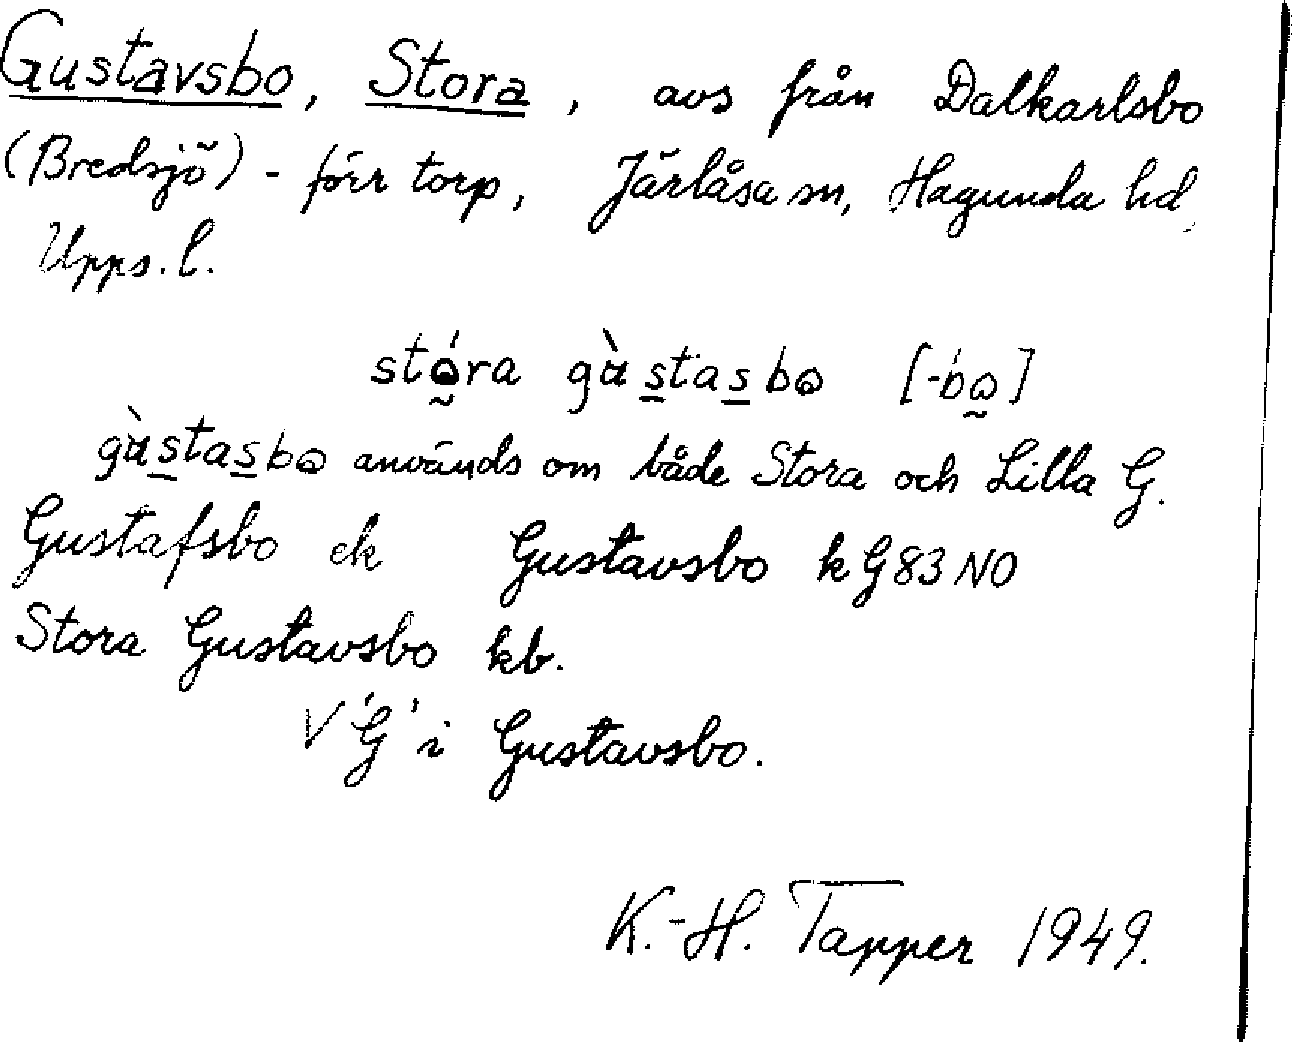 Gustavsbo, Stora, avs från Dalkarlsbo
(Bredsjö) - förr torp, Järlåsa sn, Hagunda hd,
Upps. l.
stó̰ra gàstasbo [-bo̰]
gàstasbo används om både Stora och Lilla G.
Gustafsbo ek Gustavsbo k G 83 NO
Stora Gustavsbo kb.
V 'G' i Gustavsbo.
K.-H. Tapper 1949.